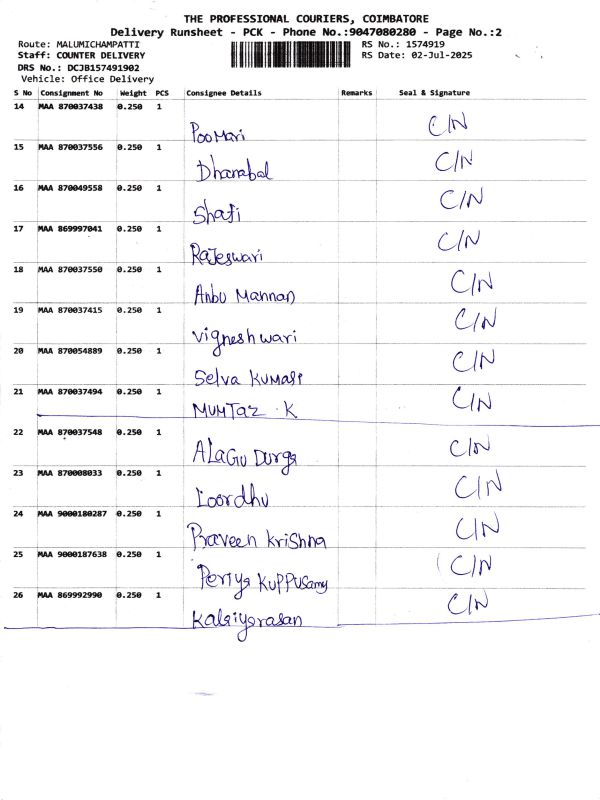 THE PROFESSIONAL COURIERS, COIMBATORE
Delivery Runsheet - PCK - Phone No.:9047080280 - Page No.:2
Route: MALUMICHAMPATTI
RS No.: 1574919
Staff: COUNTER DELIVERY
RS Date: 02-Jul-2025
DRS No.: DCJB157491902
Vehicle: Office Delivery
S No Consignment No Weight PCS Consignee Details Remarks Seal & Signature
14 MAA 870037438 0.250 1
Poomari C/N
15 MAA 870037556 0.250 1
Dhanabal C/N
16 MAA 870049558 0.250 1
Shafi C/N
17 MAA 869997041 0.250 1
Rajeswari C/N
18 MAA 870037550 0.250 1
Anbu Mannan C/N
19 MAA 870037415 0.250 1
Vigneshwari C/N
20 MAA 870054889 0.250 1
Selva Kumari C/N
21 MAA 870037494 0.250 1
MUMTAZ K C/N
22 MAA 870037548 0.250 1
ALAGU Durga C/N
23 MAA 870008033 0.250 1
Loordhu C/N
24 MAA 9000180287 0.250 1
Praveen Krishna C/N
25 MAA 9000187638 0.250 1
Periya Kuppusamy C/N
26 MAA 869992990 0.250 1
Kalaiyarasan C/N